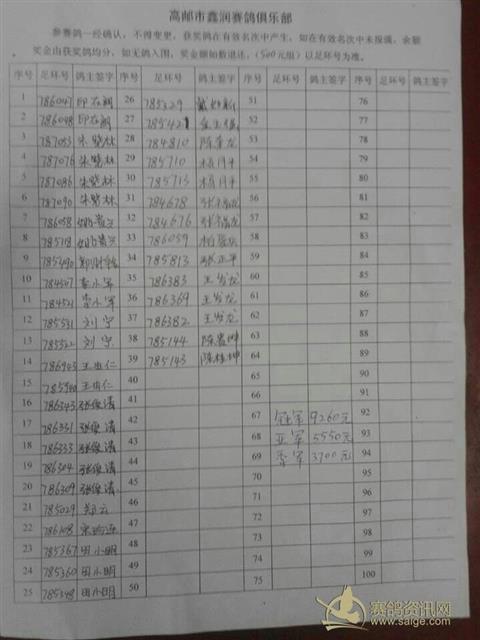 高邮市鑫润赛鸽俱乐部
参赛鸽一经确认，不得变更，获奖鸽在有效名次中产生，如在有效名次中未报满，余额
奖金由获奖鸽均分，如无鸽入围，奖金额如数退还，（500元组）以足环号为准。
序号 足环号 鸽主签字 序号 足环号 鸽主签字 序号 足环号 鸽主签字 序号 足环号 鸽主签字
1 786047 26 785329 51 76
2 786048 27 785421 52 77
3 787053 朱晓林 28 784810 53 78
4 787076 朱晓林 29 785710 54 79
5 787086 朱晓林 30 785713 55 80
6 787090 朱晓林 31 784678 56 81
7 786058 32 784676 57 82
8 785718 33 786059 58 83
9 785490 34 785813 张正平 59 84
10 784507 李小军 35 786383 王发龙 60 85
11 784521 李小军 36 786369 王发龙 61 86
12 785531 刘宁 37 786382 王发龙 62 87
13 785522 刘宁 38 785144 63 88
14 786903 39 785143 64 89
15 40 65 90
16 786343 张俊清 41 66 91
17 786331 张俊清 42 67 冠军 9260元 92
18 786333 张俊清 43 68 亚军 5550元 93
19 786304 张俊清 44 69 季军 3700元 94
20 786309 张俊清 45 70 95
21 785029 46 71 96
22 786108 47 72 97
23 785367 田小明 48 73 98
24 785360 田小明 49 74 99
25 785348 田小明 50 75 100
赛鸽资讯网
www.saige.com